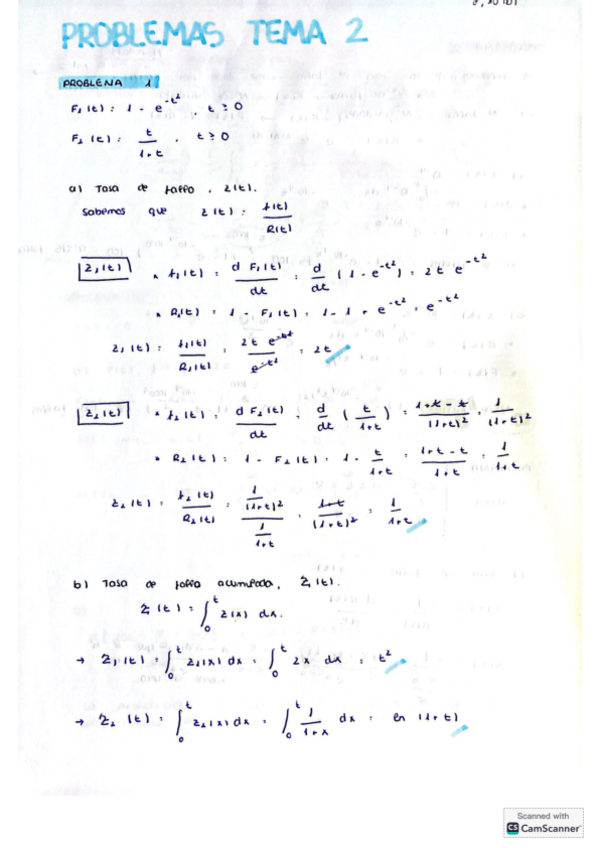 PROBLEMAS TEMA 2
PROBLEMA 1
F₁(t) = 1 - e^{-t²} , t ≥ 0
F₂(t) = t/(1+t) , t ≥ 0
a) Tasa de fallo , z(t).
Sabemos que z(t) = f(t)/R(t)
z₁(t) • f₁(t) = d F₁(t)/dt = d/dt (1 - e^{-t²}) = 2t e^{-t²}
• R₁(t) = 1 - F₁(t) = 1 - 1 + e^{-t²} = e^{-t²}
z₁(t) = f₁(t)/R₁(t) = 2t e^{-t²}/e^{-t²} = 2t
z₂(t) • f₂(t) = d F₂(t)/dt = d/dt (t/(1+t)) = (1+t-t)/(1+t)² = 1/(1+t)²
• R₂(t) = 1 - F₂(t) = 1 - t/(1+t) = (1+t-t)/(1+t) = 1/(1+t)
z₂(t) = f₂(t)/R₂(t) = (1/(1+t)²)/(1/(1+t)) = (1+t)/(1+t)² = 1/(1+t)
b) Tasa de fallo acumulada, Z(t).
Z(t) = ∫₀ᵗ z(x) dx.
→ Z₁(t) = ∫₀ᵗ z₁(x) dx = ∫₀ᵗ 2x dx = t²
→ Z₂(t) = ∫₀ᵗ z₂(x) dx = ∫₀ᵗ 1/(1+x) dx = ln(1+t)
Scanned with
CS CamScanner